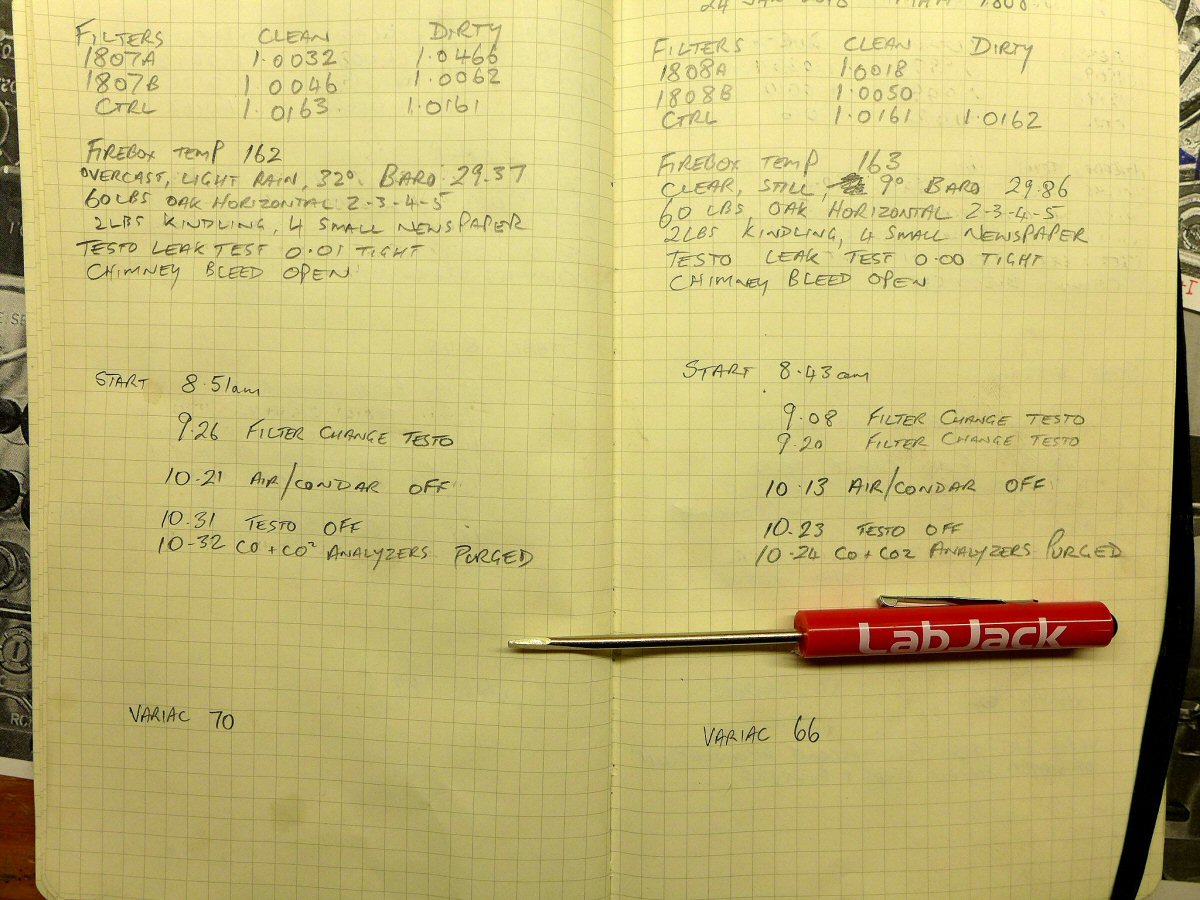 FILTERS CLEAN DIRTY
1807A 1.0032 1.0466
1807B 1.0046 1.0062
CTRL 1.0163 1.0161
FIREBOX TEMP 162
OVERCAST, LIGHT RAIN, 32° BARO 29.37
60 LBS OAK HORIZONTAL 2-3-4-5
2LBS KINDLING, 4 SMALL NEWSPAPER
TESTO LEAK TEST 0.01 TIGHT
CHIMNEY BLEED OPEN
START 8.51am
9.26 FILTER CHANGE TESTO
10.21 AIR/CONDAR OFF
10.31 TESTO OFF
10-32 CO + CO² ANALYZERS PURGED
VARIAC 70
24 JAN 2018 1808
FILTERS CLEAN DIRTY
1808A 1.0018
1808B 1.0050
CTRL 1.0161 1.0162
FIREBOX TEMP 163
CLEAR, STILL, 9° BARO 29.86
60 LBS, OAK HORIZONTAL 2-3-4-5
2LBS KINDLING, 4 SMALL NEWSPAPER
TESTO LEAK TEST 0.00 TIGHT
CHIMNEY BLEED OPEN
START 8.43am
9.08 FILTER CHANGE TESTO
9.20 FILTER CHANGE TESTO
10.13 AIR/CONDAR OFF
10.23 TESTO OFF
10-24 CO + CO2 ANALYZERS PURGED
LabJack
VARIAC 66